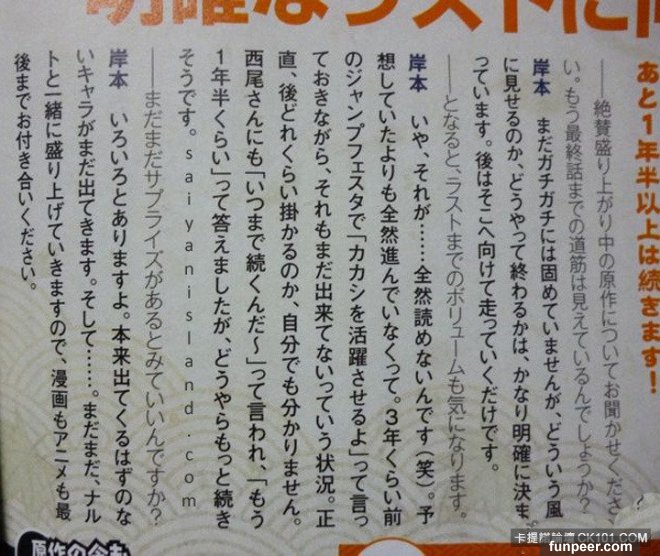 明確なラストに向
あと1年半以上は続きます!
――絶賛盛り上がり中の原作についてお聞かせくださ
い。もう最終話までの道筋は見えているんでしょうか?
岸本 まだガチガチには固めていませんが、どういう風
に見せるのか、どうやって終わるかは、かなり明確に決ま
っています。後はそこへ向けて走っていくだけです。
――となると、ラストまでのボリュームも気になります。
岸本 いや、それが……全然読めないんです(笑)。予
想していたよりも全然進んでいなくって。3年くらい前
のジャンプフェスタで「カカシを活躍させるよ」って言っ
ておきながら、それもまだ出来てないっていう状況。正
直、後どれくらい掛かるのか、自分でも分かりません。
西尾さんにも「いつまで続くんだ〜」って言われ、「もう
1年半くらい」って答えましたが、どうやらもっと続き
そうです。saiyanisland.com
――まだまだサプライズがあるとみていいんですか?
岸本 いろいろとありますよ。本来出てくるはずのな
いキャラがまだ出てきます。そして……。まだまだ、ナル
トと一緒に盛り上げていきますので、漫画もアニメも最
後までお付き合いください。
原作の今も
卡提諾論壇 CK101.COM
funpeer.com